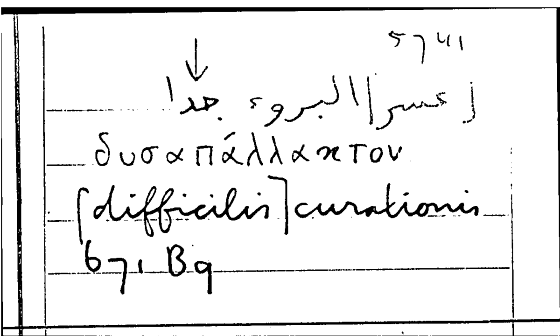 [عسر] البروء جدا
δυσαπάλλακτον
[difficilis] curationis
671 B9